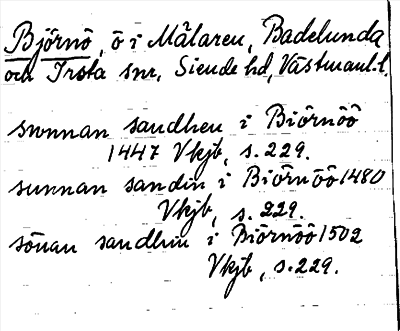 Björnö, ö i Mälaren, Badelunda
och Irsta snr, Siende hd, Västmanl. l.
swnnan sandhen i Biörnöö
1447 Vkjb, s. 229.
sunnan sandin i Biörnöö 1480
Vkjb, s. 229.
sönan sandhin i Biörnöö 1502
Vkjb, s. 229.